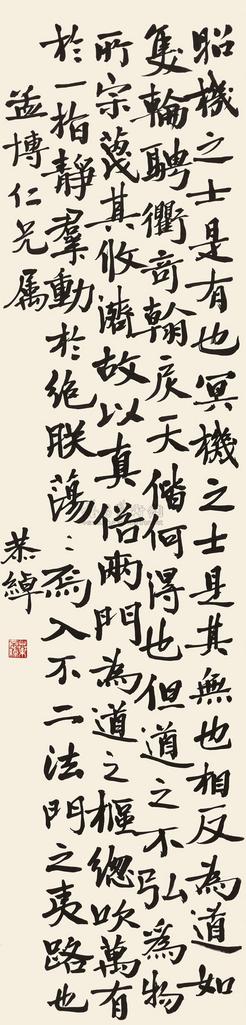 昭機之士是有也冥機之士是其無也相反為道如
隻輪騁衢奇翰戾天偕何得也但道之不弘為物
所宗蔑其攸濟故以真俗兩門為道之樞總吹萬有
於一指靜羣動於絕朕蕩蕩焉入不二法門之夷路也
孟博仁兄属
恭綽